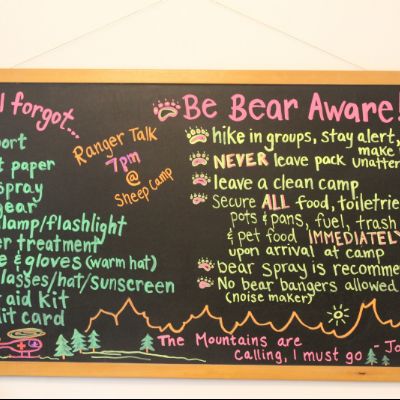 I forgot...
port
t paper
spray
gear
lamp/flashlight
er treatment
e & gloves (warm hat)
glasses/hat/sunscreen
aid kit
dit card
Ranger Talk
7pm
@
Sheep Camp
Be Bear Aware!
hike in groups, stay alert,
make
NEVER leave pack unatten
leave a clean camp
Secure ALL food, toiletries
pots & pans, fuel, trash
& pet food IMMEDIATELY
upon arrival at camp
bear spray is recomme
No bear bangers allowed
(noise maker)
The Mountains are
calling, I must go - Jo